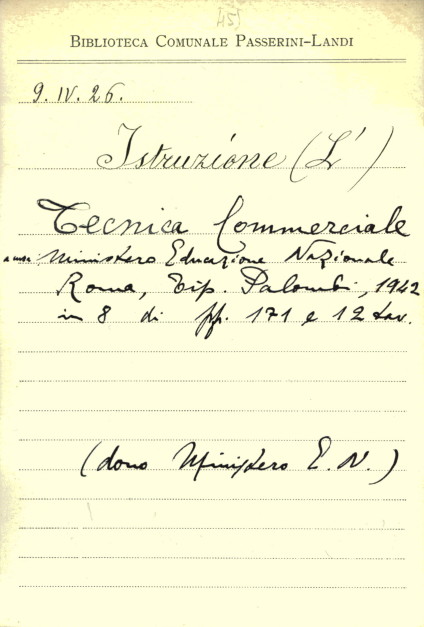 [45]
BIBLIOTECA COMUNALE PASSERINI-LANDI
9. IV. 26.
Istruzione (L')
Tecnica Commerciale
a cura Ministero Educazione Nazionale
Roma, Tip. Palombi, 1942
in 8 di pp. 171 e 12 tav.
(dono Ministero E. N.)